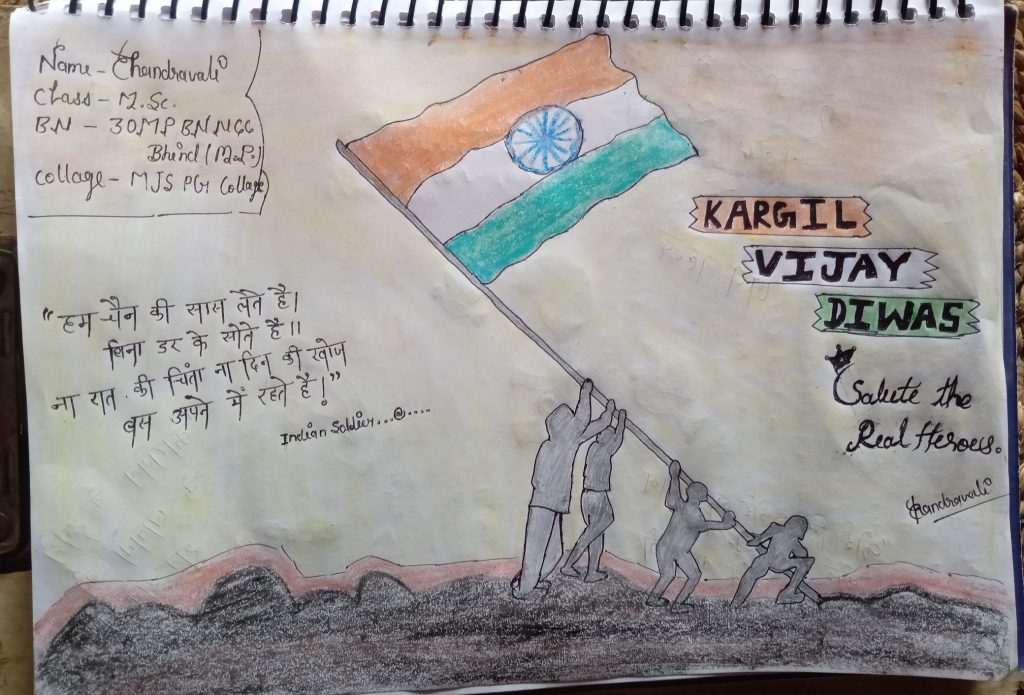 Name - Chandravali
Class - M.Sc.
BN - 30MP BN NCC
Bhind (M.P.)
Collage - MJS PG Collage
KARGIL
VIJAY
DIWAS
"हम चैन की सास लेते है।
बिना डर के सोते है।।
ना रात की चिंता ना दिन की खोज
बस अपने में रहते है!"
Indian Soldier...@....
Salute the
Real Heroes.
Chandravali